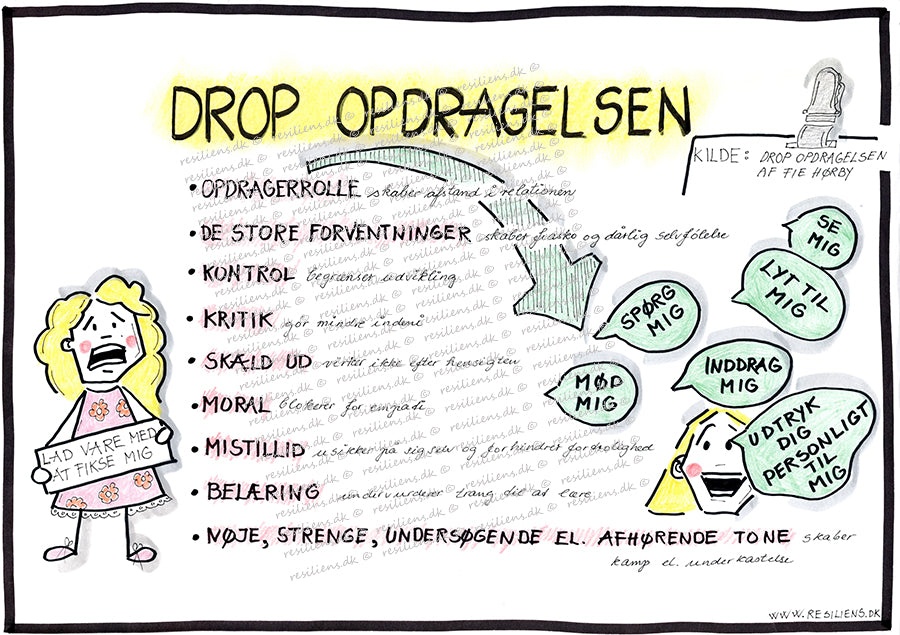 DROP OPDRAGELSEN
KILDE: DROP OPDRAGELSEN
AF FIE HØRBY
• OPDRAGERROLLE skaber afstand i relationen
• DE STORE FORVENTNINGER skaber fiasko og dårlig selvfølelse
• KONTROL begrænser udvikling
• KRITIK gør mindre indeni
• SKÆLD UD virker ikke efter hensigten
• MORAL blokerer for empati
• MISTILLID usikker på sig selv og forhindrer fortrolighed
• BELÆRING undervurderer trang til at lære
• NØJE, STRENGE, UNDERSØGENDE EL. AFHØRENDE TONE skaber
kamp el. underkastelse
LAD VÆRE MED
AT FIKSE MIG
SE
MIG
LYT TIL
MIG
SPØRG
MIG
INDDRAG
MIG
MØD
MIG
UDTRYK
DIG
PERSONLIGT
TIL
MIG
resiliens.dk ©
WWW.RESILIENS.DK